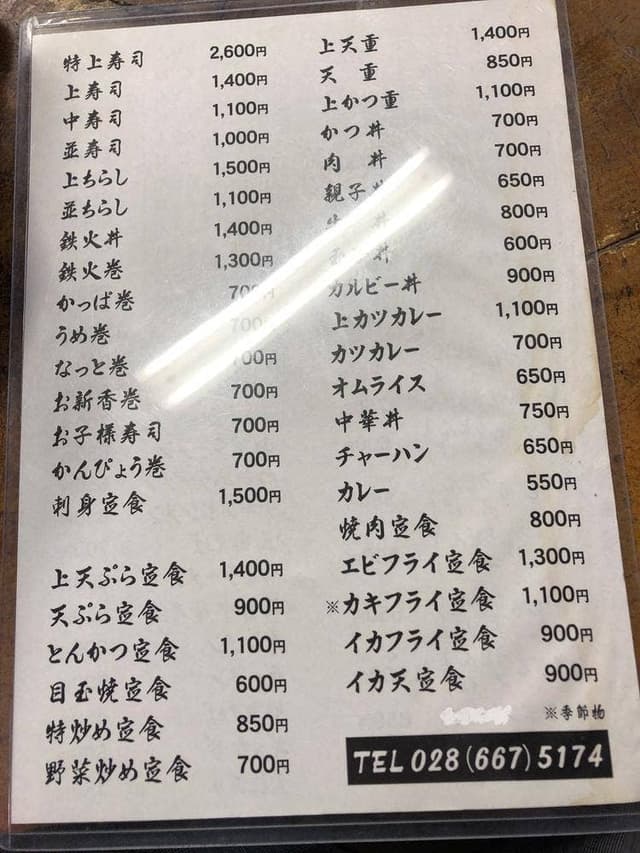 特上寿司 2,600円
上寿司 1,400円
中寿司 1,100円
並寿司 1,000円
上ちらし 1,500円
並ちらし 1,100円
鉄火丼 1,400円
鉄火巻 1,300円
かっぱ巻 700円
うめ巻 700円
なっと巻 700円
お新香巻 700円
お子様寿司 700円
かんぴょう巻 700円
刺身定食 1,500円
上天ぷら定食 1,400円
天ぷら定食 900円
とんかつ定食 1,100円
目玉焼定食 600円
特炒め定食 850円
野菜炒め定食 700円
上天重 1,400円
天重 850円
上かつ重 1,100円
かつ丼 700円
肉丼 700円
親子丼 650円
丼 800円
丼 600円
カルビー丼 900円
上カツカレー 1,100円
カツカレー 700円
オムライス 650円
中華丼 750円
チャーハン 650円
カレー 550円
焼肉定食 800円
エビフライ定食 1,300円
※カキフライ定食 1,100円
イカフライ定食 900円
イカ天定食 900円
※季節物
TEL 028(667)5174